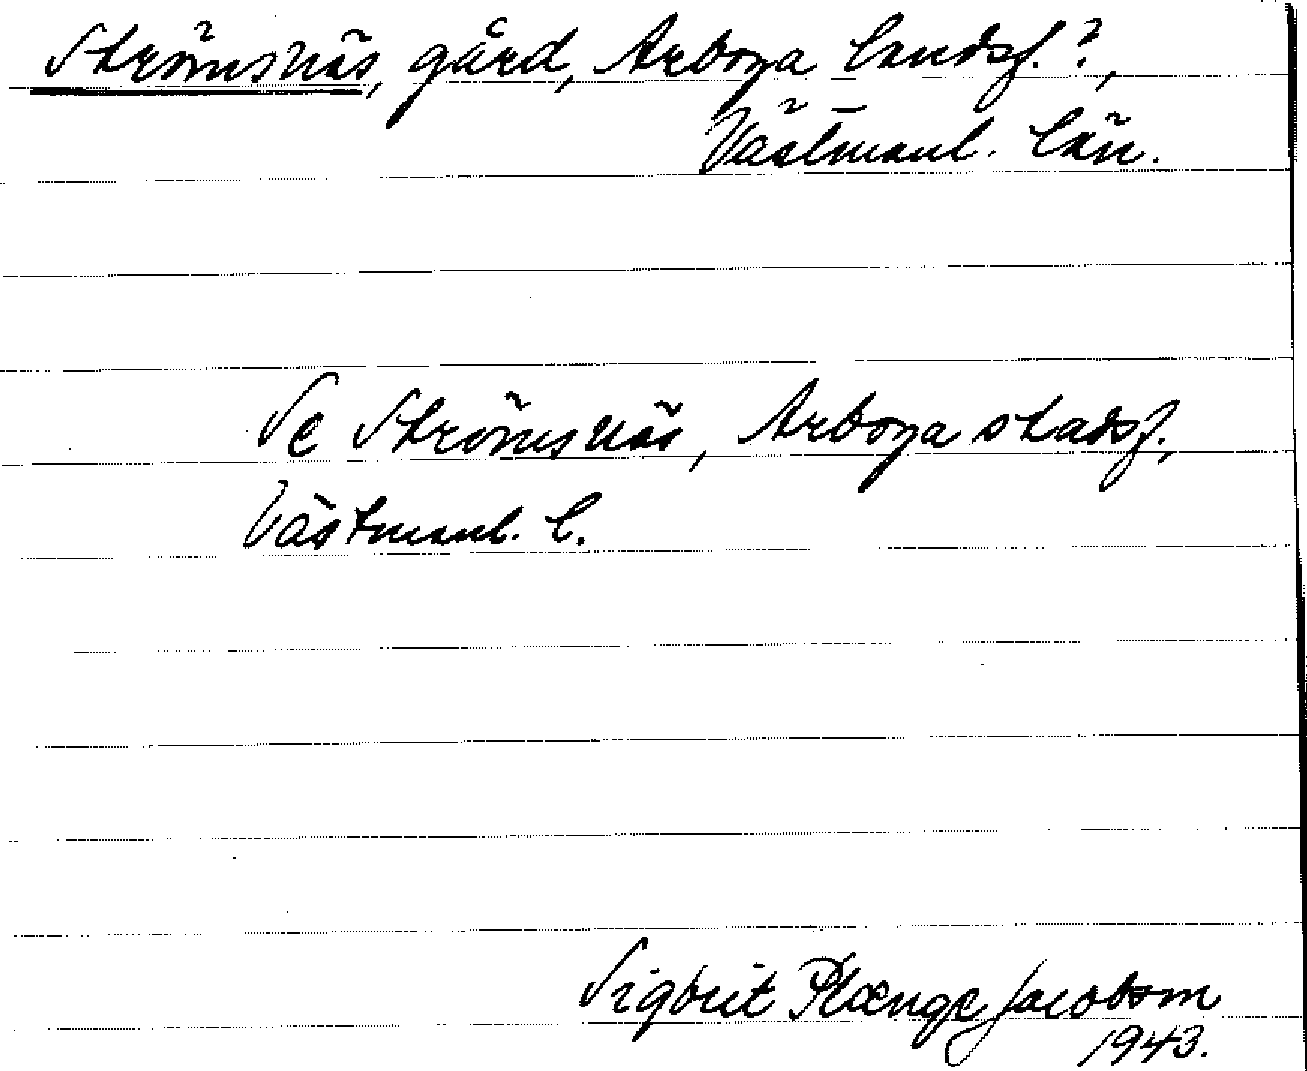 Strömsnäs, gård, Arboga landsf.?,
Västmanl. län.
Se Strömsnäs, Arboga stadsf.,
Västmanl. l.
Sigbrit Plænge Jacobson
1943.